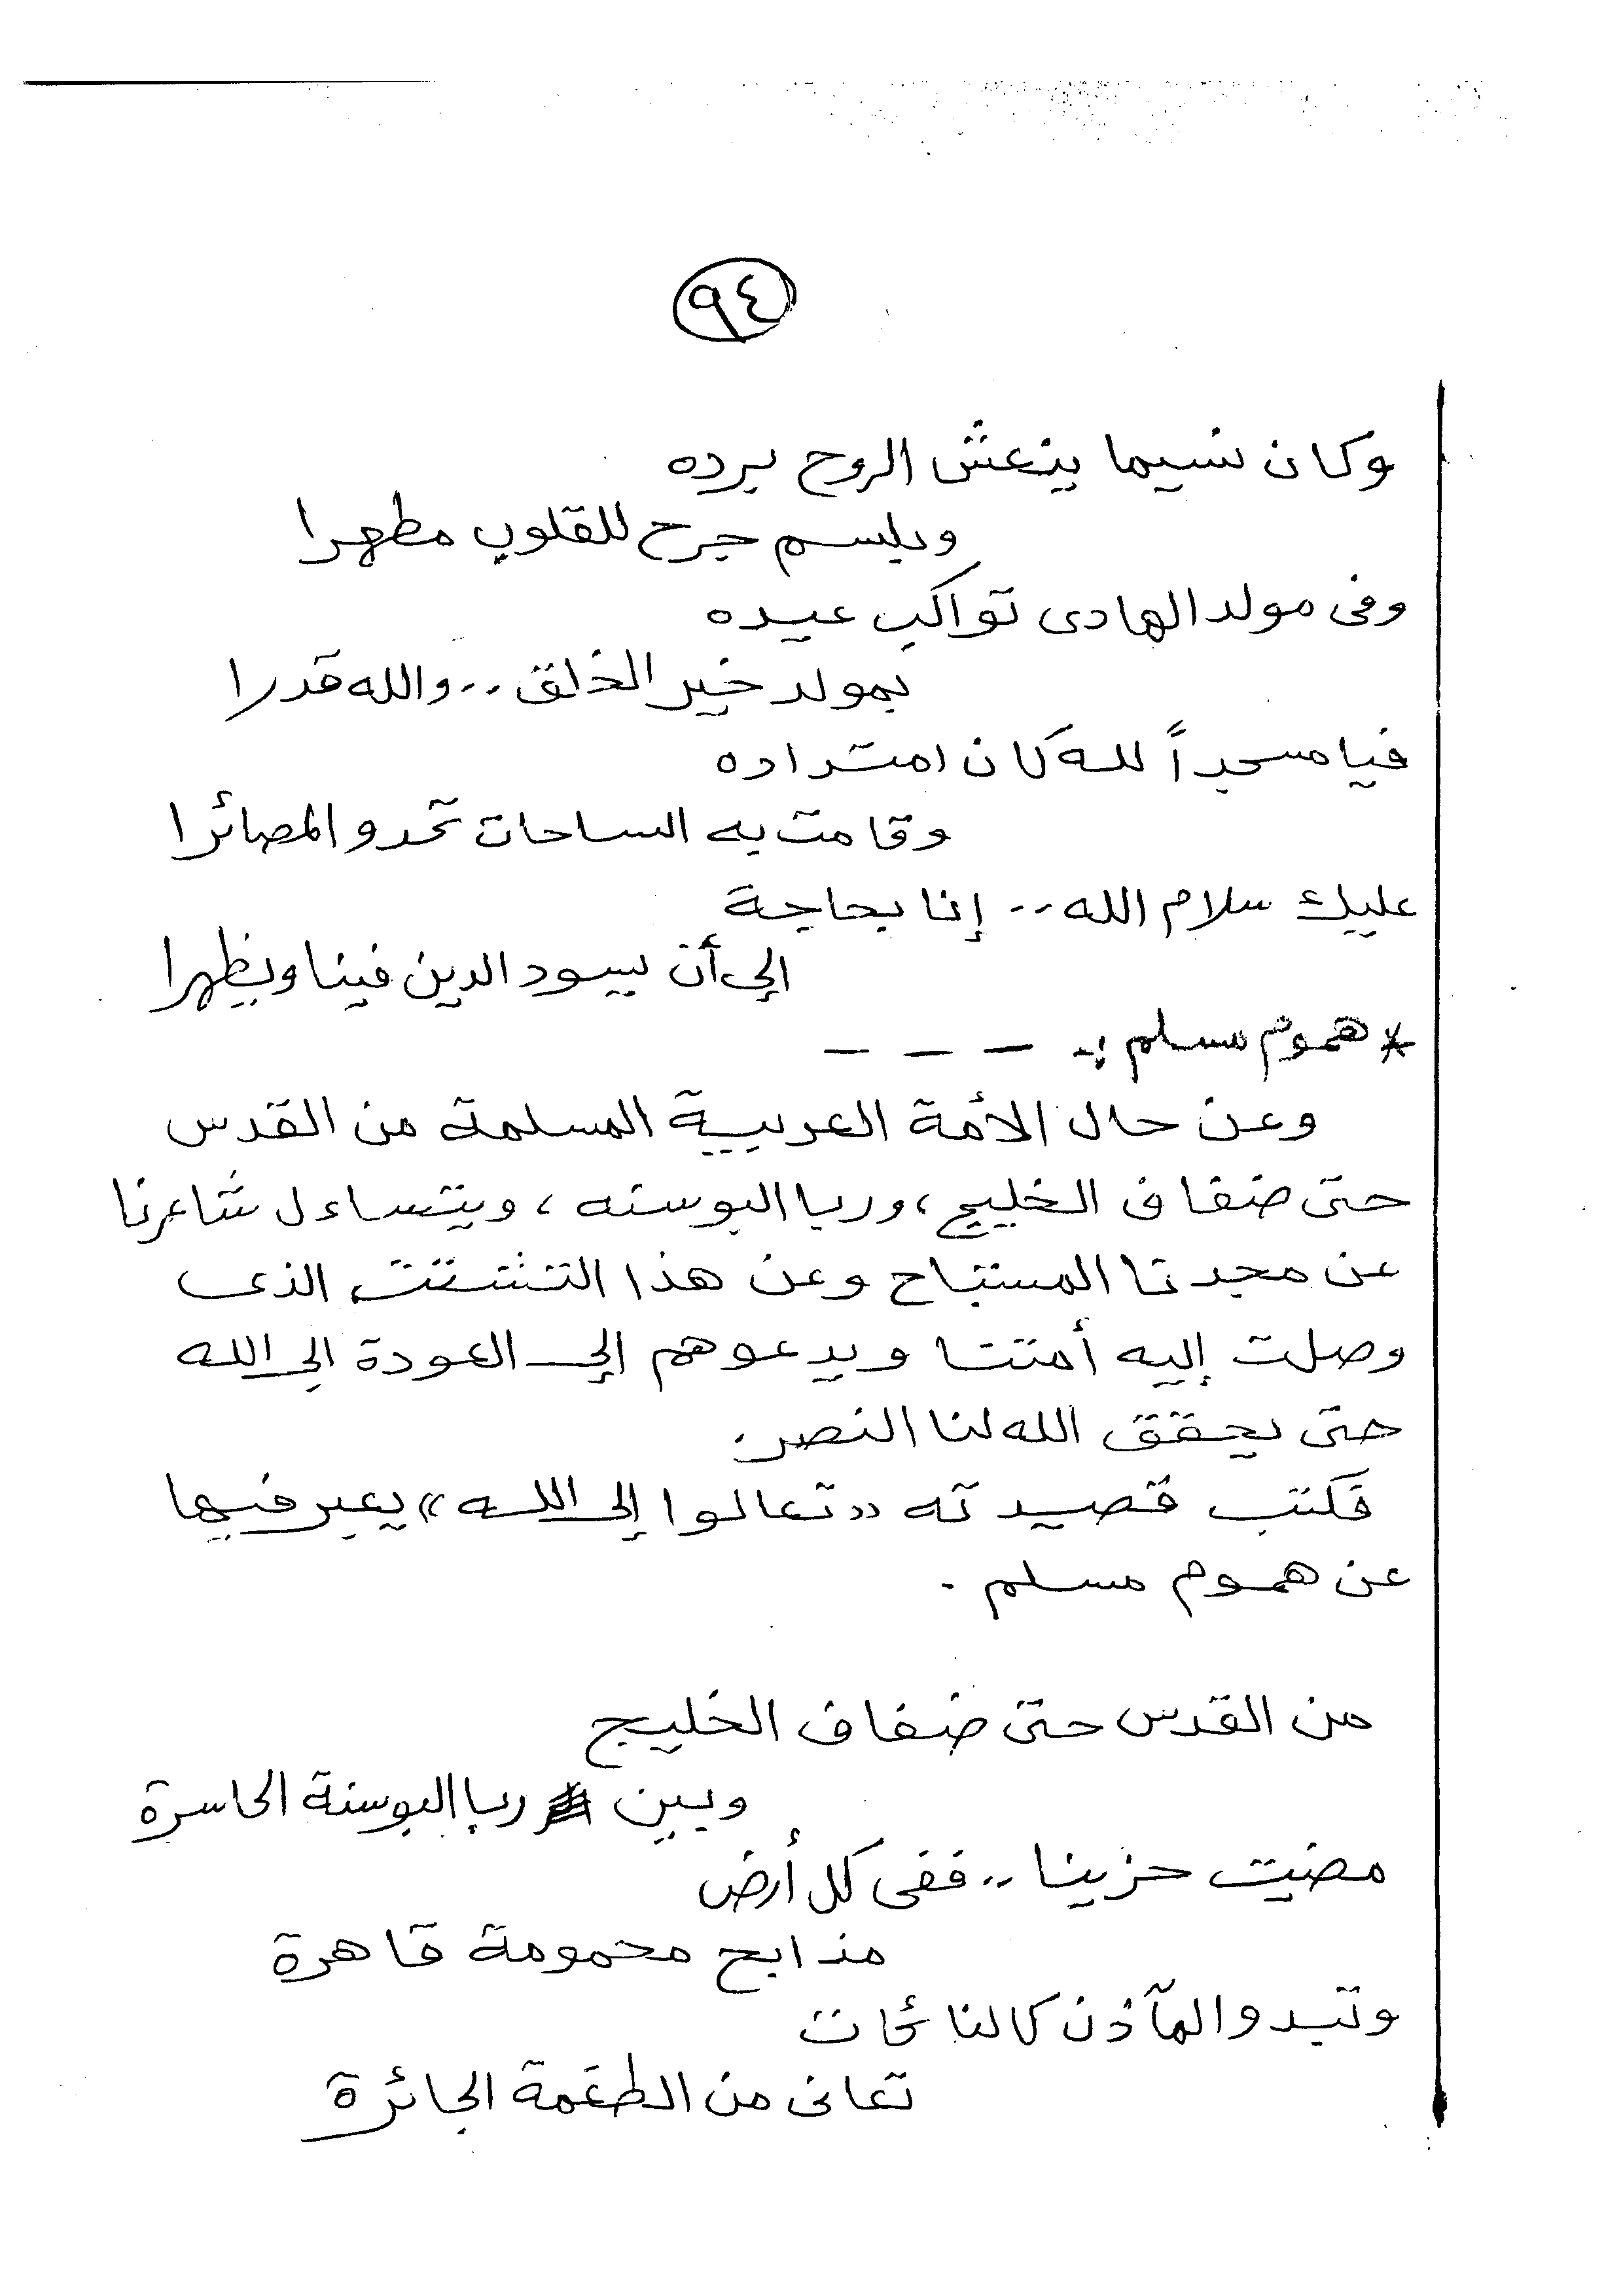 ٩٤
وكان نسيما ينعش الروح برده
وبلسم جرح للقلوب مطهرا
وفى مولد الهادى تواكب عيده
بمولد خير الخلق .. والله قدرا
فيا مسجداً لله كان امتداده
وقامت به الساحات تحدو المصائرا
عليك سلام الله .. إنا بحاجة
إلى أن يسود الدين فينا ويظهرا
* هموم مسلم :- - - -
وعن حال الأمة العربية المسلمة من القدس
حتى ضفاف الخليج ، وربا البوسنه ، ويتساءل شاعرنا
عن مجدنا المستباح وعن هذا التشتت الذى
وصلت إليه أمتنا ويدعوهم إلى العودة إلى الله
حتى يحقق الله لنا النصر .
فكتب قصيدته « تعالوا إلى الله » يعبر فيها
عن هموم مسلم .
من القدس حتى ضفاف الخليج
وبين ربا البوسنة الحاسرة
مضيت حزينا .. ففى كل أرض
مذابح محمومة قاهرة
وتبدو المآذن كالنائحات
تعانى من الطغمة الجائرة